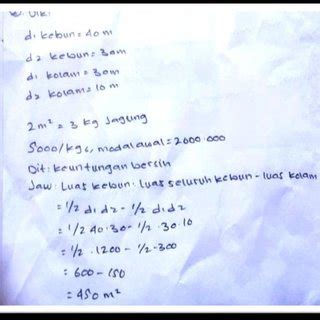 Dik:
d1 kebun = 40 m
d2 kebun = 30 m
d1 kolam = 30 m
d2 kolam = 10 m
2 m² = 3 kg Jagung
5000/kg, modal awal = 2000.000
Dit: keuntungan bersih
Jaw: Luas kebun: luas seluruh kebun - luas kolam
= 1/2 d1 d2 - 1/2 d1 d2
= 1/2 40.30 - 1/2 .30.10
= 1/2 .1200 - 1/2 .300
= 600 - 150
= 450 m²